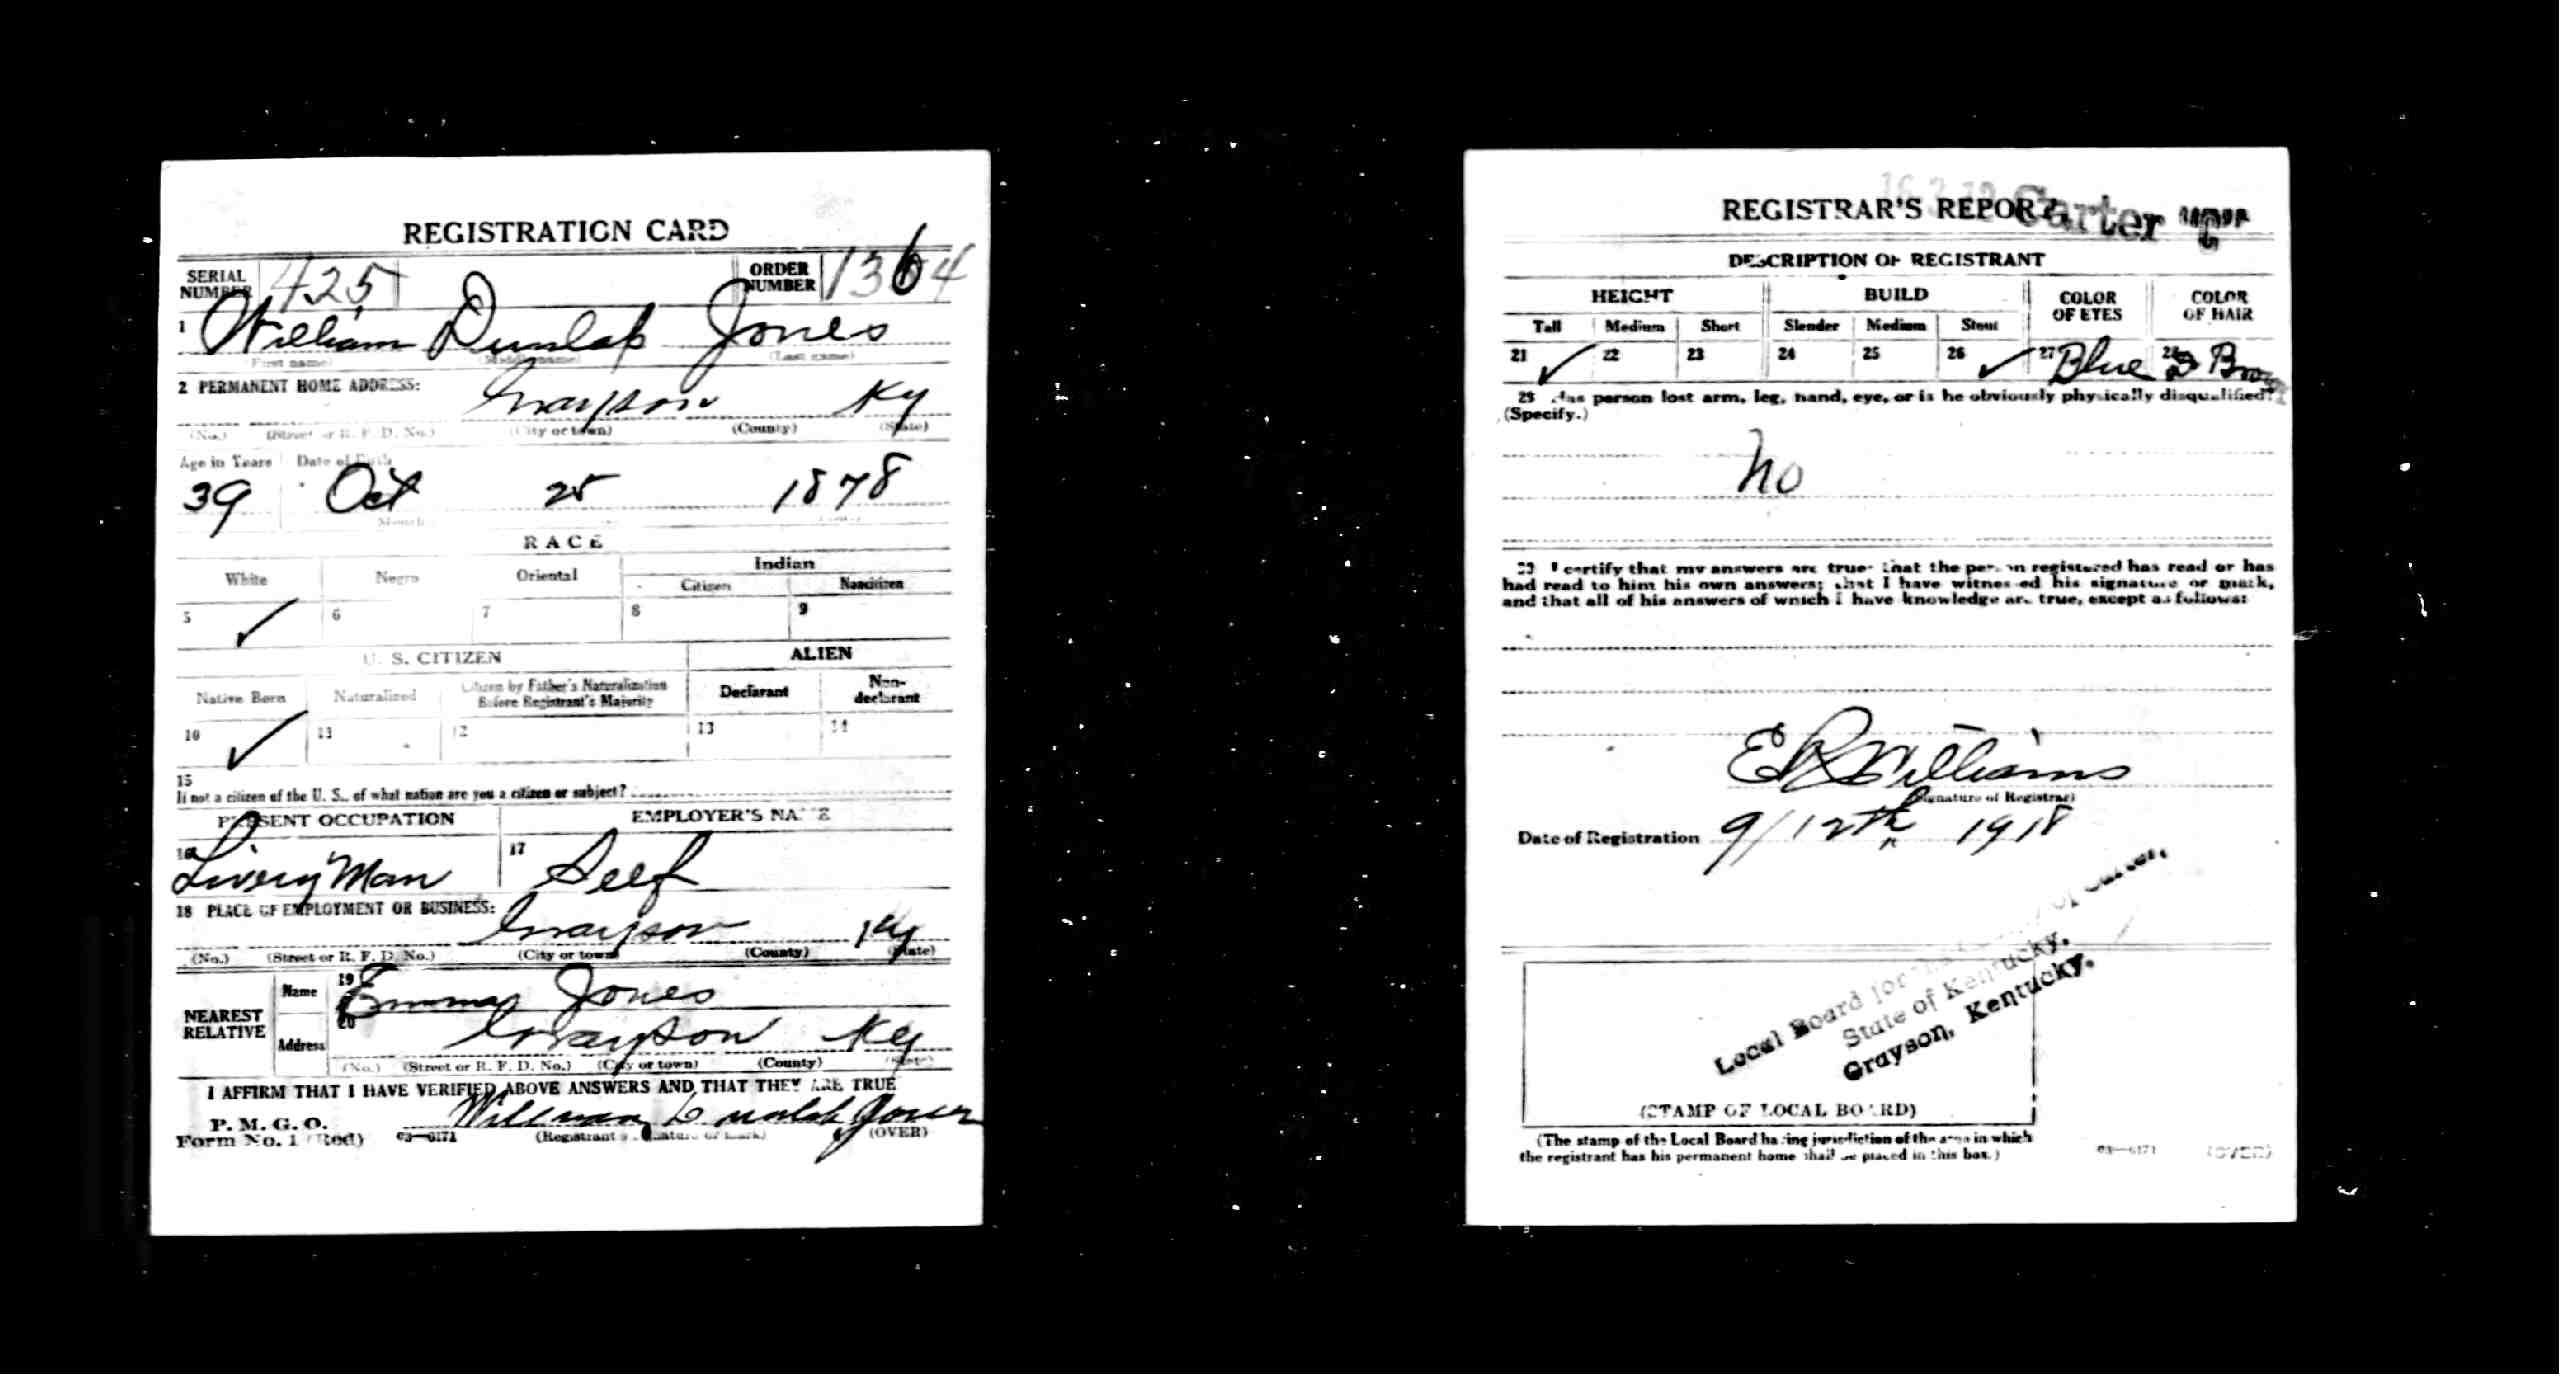 REGISTRATION CARD
SERIAL NUMBER 425 ORDER NUMBER 1364
1 William Dunlap Jones
(First name) (Middle name) (Last name)
2 PERMANENT HOME ADDRESS:
Grayson Ky
(No.) (Street or R. F. D. No.) (City or town) (County) (State)
Age in Years Date of Birth
39 Oct 25 1878
Month
RACE
White Negro Oriental Indian
Citizen Noncitizen
5 ✓ 6 7 8 9
U. S. CITIZEN ALIEN
Native Born Naturalized Citizen by Father's Naturalization Before Registrant's Majority Declarant Non-declarant
10 ✓ 11 12 13 14
15
If not a citizen of the U. S., of what nation are you a citizen or subject?
PRESENT OCCUPATION EMPLOYER'S NAME
16 Livery Man 17 Self
18 PLACE OF EMPLOYMENT OR BUSINESS:
Grayson Ky
(No.) (Street or R. F. D. No.) (City or town) (County) (State)
NEAREST RELATIVE Name 19 Emma Jones
Address 20 Grayson Ky
(No.) (Street or R. F. D. No.) (City or town) (County) (State)
I AFFIRM THAT I HAVE VERIFIED ABOVE ANSWERS AND THAT THEY ARE TRUE
P. M. G. O.
Form No. 1 (Red) 03—6171 William Dunlap Jones
(Registrant's signature or mark) (OVER)
REGISTRAR'S REPORT Carter "C"
DESCRIPTION OF REGISTRANT
HEIGHT BUILD COLOR OF EYES COLOR OF HAIR
Tall Medium Short Slender Medium Stout
21 ✓ 22 23 24 25 26 ✓ 27 Blue 28 D Brow
29 Has person lost arm, leg, hand, eye, or is he obviously physically disqualified?
(Specify.)
No
30 I certify that my answers are true; that the person registered has read or has
had read to him his own answers; that I have witnessed his signature or mark,
and that all of his answers of which I have knowledge are true, except as follows:
E R Williams
(Signature of Registrar)
Date of Registration 9/12th 1918
Local Board for the County of Carter,
State of Kentucky,
Grayson, Kentucky.
(STAMP OF LOCAL BOARD)
(The stamp of the Local Board having jurisdiction of the area in which
the registrant has his permanent home shall be placed in this box.)
03—6171 (OVER)